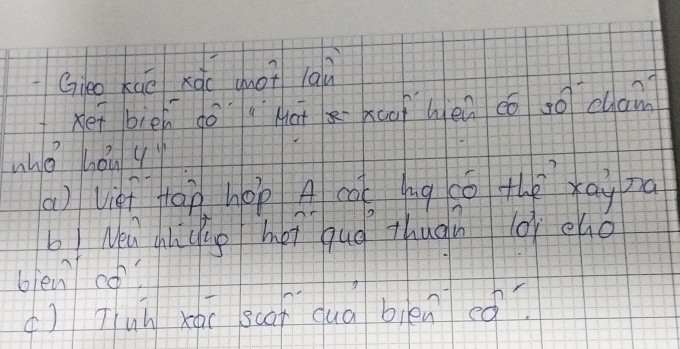 - Gieo xúc xắc một lần
- Xét biến cố " Mặt xuất hiện có số chấm
nhỏ hơn 4"
a) Viết tập hợp A các kq có thể xảy ra
b) Nêu những kết quả thuận lợi cho
biến cố.
c) Tính xác suất của biến cố.